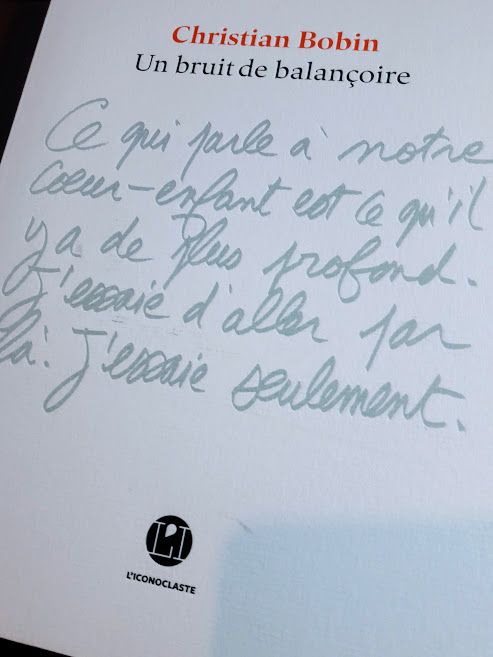 Christian Bobin
Un bruit de balançoire
Ce qui parle à notre
cœur-enfant est ce qu'il
y a de plus profond.
J'essaie d'aller par
là. J'essaie seulement.
L'ICONOCLASTE